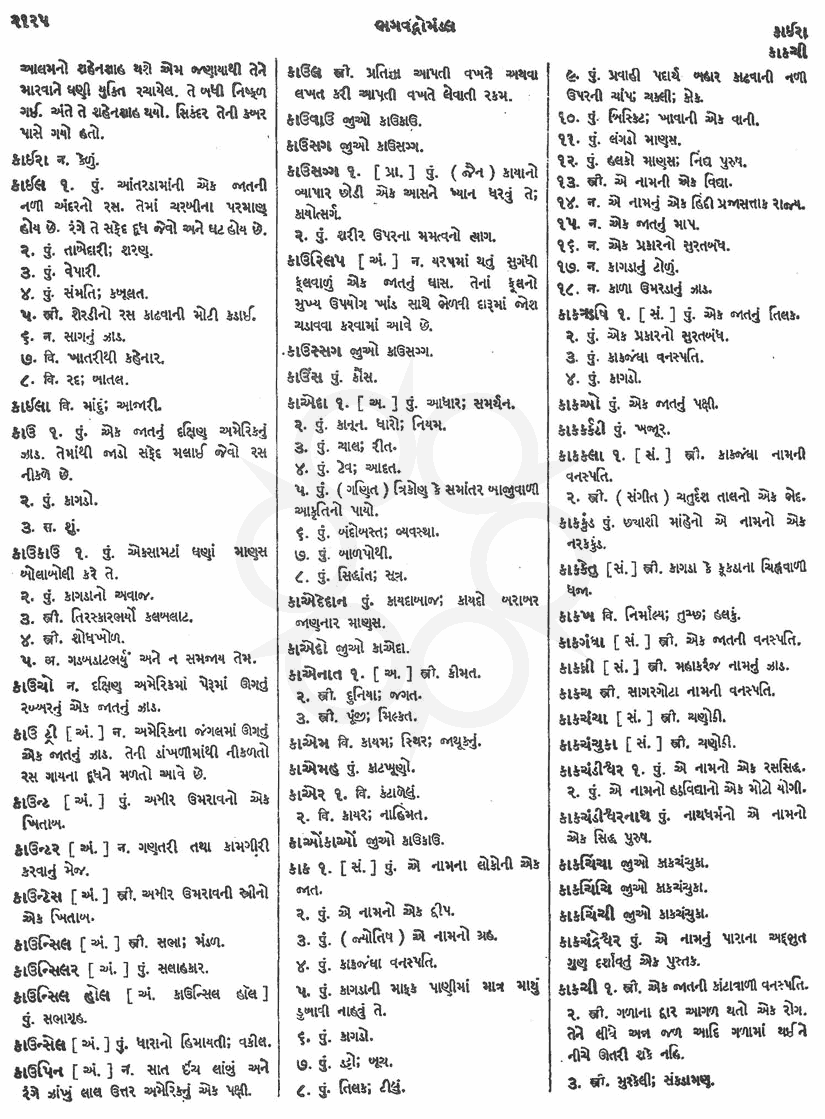 ૨૧૨૫
ભગવદ્ગોમંડલ
કાઈરા
કાકચી
આલમનો શહેનશાહ થશે એમ જણાયાથી તેને
મારવાને ઘણી યુક્તિ રચાયેલ. તે બધી નિષ્ફળ
ગઈ. અંતે તે શહેનશાહ થયો. સિકંદર તેની કબર
પાસે ગયો હતો.
કાઈરા ન. કેળું.
કાઈલ ૧. પું. આંતરડામાંની એક જાતની
નળી અંદરનો રસ. તેમાં ચરબીના પરમાણુ
હોય છે. રંગે તે સફેદ દૂધ જેવો અને ઘટ હોય છે.
૨. પું. તાબેદારી; શરણુ.
૩. પું. વેપારી.
૪. પું. સંમતિ; કબૂલત.
૫. સ્ત્રી. શેરડીનો રસ કાઢવાની મોટી કડાઈ.
૬. ન. સાગનું ઝાડ.
૭. વિ. ખાતરીથી કહેનાર.
૮. વિ. રદ; બાતલ.
કાઈલા વિ. માંદું; આજારી.
કાઉ ૧. પું. એક જાતનું દક્ષિણ અમેરિકનું
ઝાડ. તેમાંથી જાડો સફેદ મલાઈ જેવો રસ
નીકળે છે.
૨. પું. કાગડો.
૩. સ. શું.
કાઉકાઉ ૧. પું. એકસામટાં ઘણાં માણસ
બોલાબોલી કરે તે.
૨. પું. કાગડાનો અવાજ.
૩. સ્ત્રી. તિરસ્કારભર્યો કલબલાટ.
૪. સ્ત્રી. શોધખોળ.
૫. અ. ગડબડાટભર્યું અને ન સમજાય તેમ.
કાઉચો ન. દક્ષિણ અમેરિકમાં પેરૂમાં ઊગતું
રબ્બરનું એક જાતનું ઝાડ.
કાઉ ટ્રી [ અં. ] ન. અમેરિકના જંગલમાં ઊગતું
એક જાતનું ઝાડ. તેની ડાંખળીમાંથી નીકળતો
રસ ગાયના દૂધને મળતો આવે છે.
કાઉન્ટ [ અં. ] પું. અમીર ઉમરાવનો એક
ખિતાબ.
કાઉન્ટર [ અં. ] ન. ગણતરી તથા કામગીરી
કરવાનું મેજ.
કાઉન્ટેસ [ અં. ] સ્ત્રી. અમીર ઉમરાવની સ્ત્રીનો
એક ખિતાબ.
કાઉન્સિલ [ અં. ] સ્ત્રી. સભા; મંડળ.
કાઉન્સિલર [ અં. ] પું. સલાહકાર.
કાઉન્સિલ હોલ [ અં. કાઉન્સિલ હૉલ ]
પું. સભાગૃહ.
કાઉન્સેલ [ અં. ] પું. ધારાનો હિમાયતી; વકીલ.
કાઉપિન [ અં. ] ન. સાત ઈંચ લાંબું અને
રંગે ઝાંખું લાલ ઉત્તર અમેરિકનું એક પક્ષી.
કાઉલ સ્ત્રી. પ્રતિજ્ઞા આપતી વખતે અથવા
લખત કરી આપતી વખતે લેવાતી રકમ.
કાઉવાઉ જુઓ કાઉકાઉ.
કાઉસગ જુઓ કાઉસગ્ગ.
કાઉસગ્ગ ૧. [ પ્રા. ] પું. ( જૈન ) કાયાનો
વ્યાપાર છોડી એક આસને ધ્યાન ધરવું તે;
કાયોત્સર્ગ.
૨. પું. શરીર ઉપરના મમત્વનો ત્યાગ.
કાઉસ્લિપ [ અં. ] ન. યરપમાં થતું સુગંધી
ફૂલવાળું એક જાતનું ઘાસ. તેનાં ફૂલનો
મુખ્ય ઉપયોગ ખાંડ સાથે ભેળવી દારૂમાં જોશ
ચડાવવા કરવામાં આવે છે.
કાઉસ્સગ જુઓ કાઉસગ્ગ.
કાઉંસ પું. કૌંસ.
કાએદા ૧. [ અ. ] પું. આધાર; સમર્થન.
૨. પું. કાનૂન. ધારો; નિયમ.
૩. પું. ચાલ; રીત.
૪. પું. ટેવ; આદત.
૫. પું. ( ગણિત ) ત્રિકોણ કે સમાંતર બાજુવાળી
આકૃતિનો પાયો.
૬. પું. બંદોબસ્ત; વ્યવસ્થા.
૭. પું. બાળપોથી.
૮. પું. સિદ્ધાંત; સત્ર.
કાએદેદાન પું. કાયદાબાજ; કાયદો બરાબર
જાણનાર માણસ.
કાએદો જુઓ કાએદા.
કાએનાત ૧. [ અ. ] સ્ત્રી. કીમત.
૨. સ્ત્રી. દુનિયા; જગત.
૩. સ્ત્રી. પૂંજી; મિલ્કત.
કાએમ વિ. કાયમ; સ્થિર; જાથૂકનું.
કાએમહ પું. કાટખૂણો.
કાએર ૧. વિ. કંટાળેલું.
૨. વિ. કાયર; નાહિંમત.
કાઓંકાઓં જુઓ કાઉકાઉ.
કાક ૧. [ સં. ] પું. એ નામના લોકોની એક
જાત.
૨. પું. એ નામનો એક દ્વીપ.
૩. પું. ( જ્યોતિષ ) એ નામનો ગ્રહ.
૪. પું. કાકજંઘા વનસ્પતિ.
૫. પું. કાગડાની માફક પાણીમાં માત્ર માથું
ડુબાવી નાહવું તે.
૬. પું. કાગડો.
૭. પું. દટ્ટો; બૂચ.
૮. પું. તિલક; ટીલું.
૯. પું. પ્રવાહી પદાર્થ બહાર કાઢવાની નળી
ઉપરની ચાંપ; ચકલી; કૉક.
૧૦. પું. બિસ્કિટ; ખાવાની એક વાની.
૧૧. પું. લંગડો માણસ.
૧૨. પું. હલકો માણસ; નિંદ્ય પુરુષ.
૧૩. સ્ત્રી. એ નામની એક વિદ્યા.
૧૪. ન. એ નામનું એક હિંદી પ્રજાસત્તાક રાજ્ય.
૧૫. ન. એક જાતનું માપ.
૧૬. ન. એક પ્રકારનો સુરતબંધ.
૧૭. ન. કાગડાનું ટોળું.
૧૮. ન. કાળા ઉમરડાનું ઝાડ.
કાકઋષિ ૧. [ સં ] પું. એક જાતનું તિલક.
૨. પું. એક પ્રકારનો સુરતબંધ.
૩. પું. કાકજંઘા વનસ્પતિ.
૪. પું. કાગડો.
કાકઓ પું. એક જાતનું પક્ષી.
કાકકર્કટી પું. ખજૂર.
કાકકલા ૧. [ સં. ] સ્ત્રી. કાકજંઘા નામની
વનસ્પતિ.
૨. સ્ત્રી. ( સંગીત ) ચતુર્દશ તાલનો એક ભેદ.
કાકકુંડ પું. છ્યાશી માંહેનો એ નામનો એક
નરકકુંડ.
કાકકેતુ [ સં. ] સ્ત્રી. કાગડા કે કૂકડાના ચિહ્નવાળી
ધજા.
કાકખ વિ. નિર્માલ્ય; તુચ્છ; હલકું.
કાકગંધા [ સં. ] સ્ત્રી. એક જાતની વનસ્પતિ.
કાકઘ્ની [ સં. ] સ્ત્રી. મહાકરંજ નામનું ઝાડ.
કાકચ સ્ત્રી. સાગરગોટા નામની વનસ્પતિ.
કાકચંચા [ સં. ] સ્ત્રી. ચણોઠી.
કાકચંચુકા [ સં. ] સ્ત્રી. ચણોઠી.
કાકચંડીશ્વર ૧. પું. એ નામનો એક રસસિદ્ધ.
૨. પું. એ નામનો હઠવિદ્યાનો એક મોટો યોગી.
કાકચંડીશ્વરનાથ પું. નાથધર્મનો એ નામનો
એક સિદ્ધ પુરુષ.
કાકચિંચા જુઓ કાકચંચુકા.
કાકચિંચિ જુઓ કાકચંચુકા.
કાકચિંચી જુઓ કાકચંચુકા.
કાકચંદ્રેશ્વર પું. એ નામનું પારાના અદ્ભુત
ગુણ દર્શાવતું એક પુસ્તક.
કાકચી ૧. સ્ત્રી. એક જાતની કાંટાવાળી વનસ્પતિ.
૨. સ્ત્રી. ગળાના દ્વાર આગળ થતો એક રોગ.
તેને લીધે અન્ન જળ આદિ ગળામાં થઈને
નીચે ઊતરી શકે નહિ.
૩. સ્ત્રી. મુશ્કેલી; સંકડામણ.